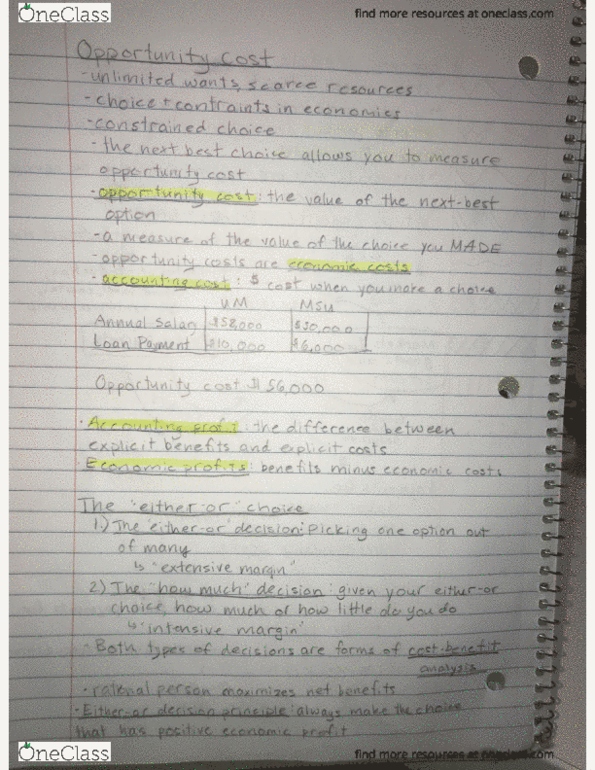 OneClass
find more resources at oneclass.com
Opportunity cost
-unlimited wants, scarce resources
-choice + contraints in economics
-constrained choice
-the next best choice allows you to measure
opportunity cost
-opportunity cost: the value of the next-best
option
-a measure of the value of the choice you MADE
-opportunity costs are economic costs
-accounting cost: $ cost when you make a choice
UM MSU
Annual Salary $58,000 $50,000
Loan Payment $10,000 $6,000
Opportunity cost $156,000
·Accounting profit: the difference between
explicit benefits and explicit costs
Economic profits: benefits minus economic costs
The "either-or" choice
1.) The "either-or" decision: picking one option out
of many
↳ "extensive margin"
2) The "how much" decision: given your either-or
choice, how much or how little do you do
↳ "intensive margin"
-Both types of decisions are forms of cost-benefit
analysis
·rational person maximizes net benefits
·Either-or decision principle: always make the choice
that has positive economic profit
OneClass
find more resources at oneclass.com